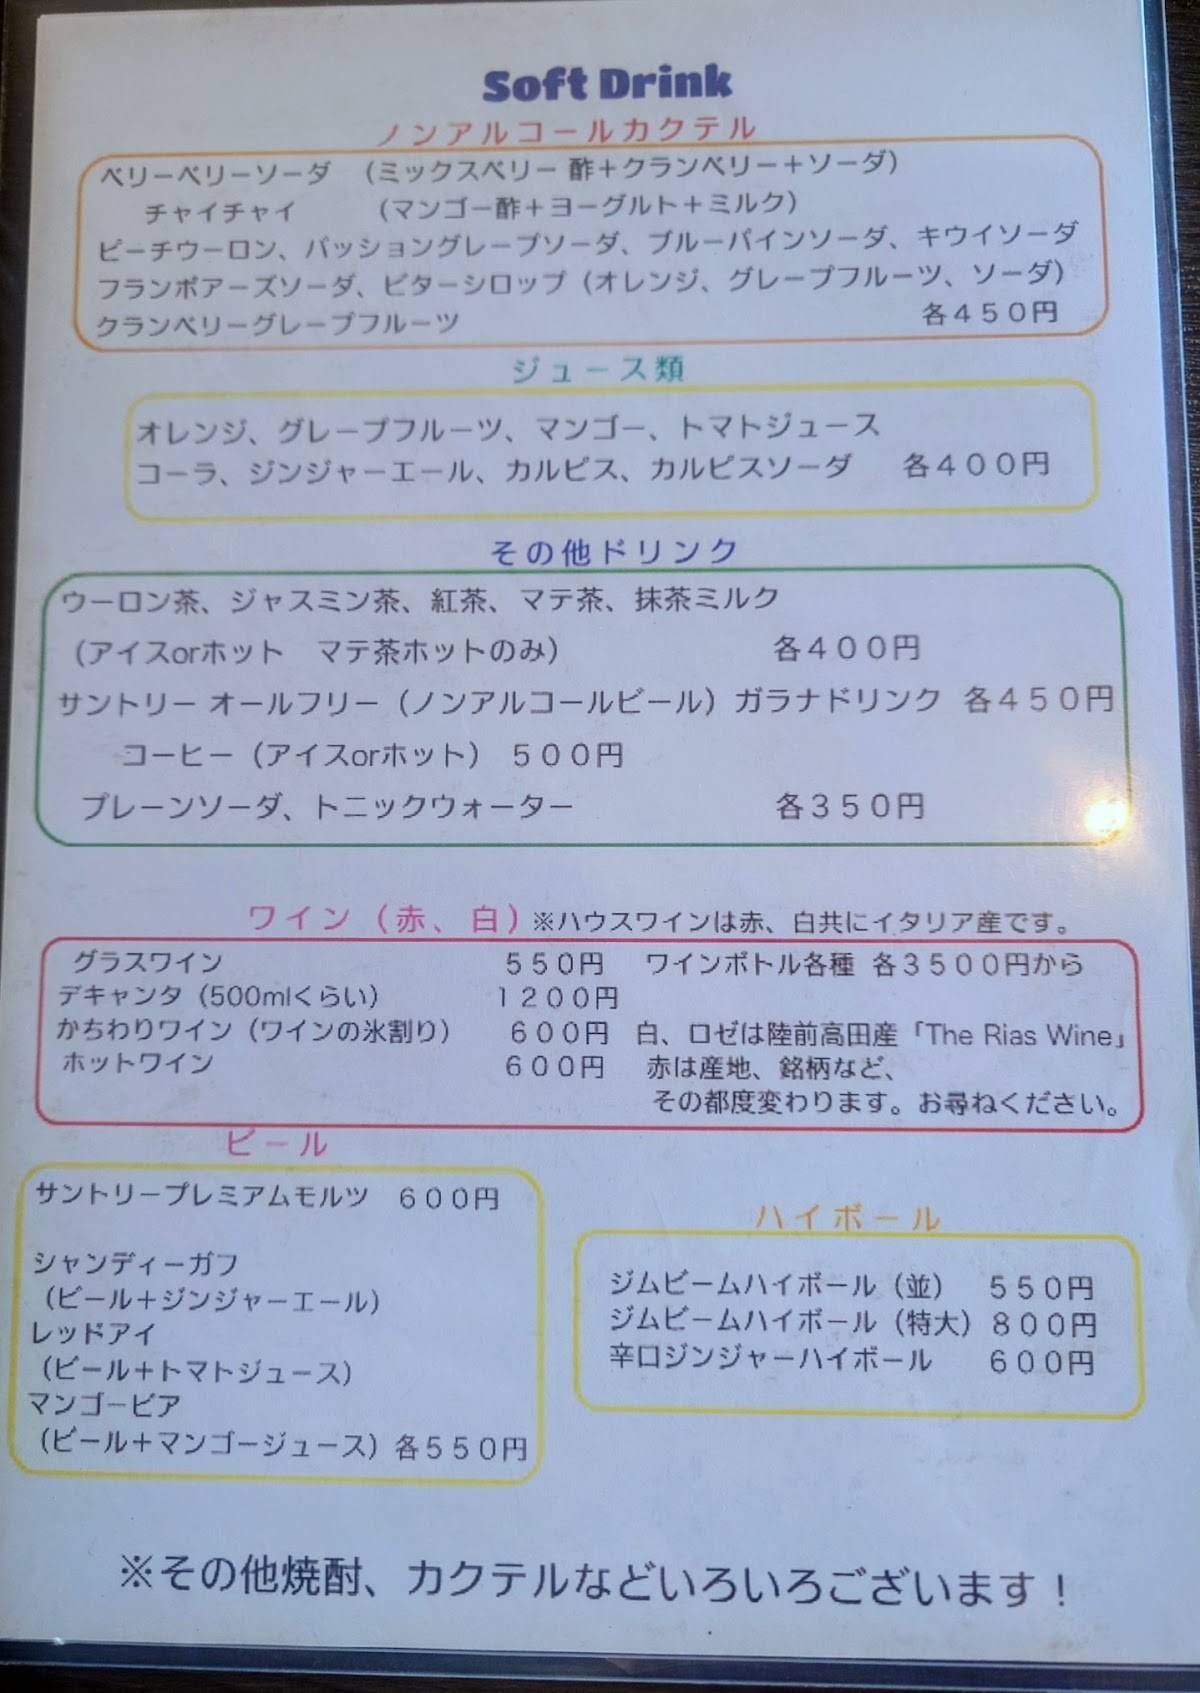 Soft Drink
ノンアルコールカクテル
ベリーベリーソーダ （ミックスベリー 酢＋クランベリー＋ソーダ）
チャイチャイ （マンゴー酢＋ヨーグルト＋ミルク）
ピーチウーロン、パッショングレープソーダ、ブルーパインソーダ、キウイソーダ
フランボアーズソーダ、ビターシロップ（オレンジ、グレープフルーツ、ソーダ）
クランベリーグレープフルーツ 各４５０円
ジュース類
オレンジ、グレープフルーツ、マンゴー、トマトジュース
コーラ、ジンジャーエール、カルピス、カルピスソーダ 各４００円
その他ドリンク
ウーロン茶、ジャスミン茶、紅茶、マテ茶、抹茶ミルク
（アイスorホット マテ茶ホットのみ） 各４００円
サントリー オールフリー（ノンアルコールビール）ガラナドリンク 各４５０円
コーヒー（アイスorホット） ５００円
プレーンソーダ、トニックウォーター 各３５０円
ワイン（赤、白）※ハウスワインは赤、白共にイタリア産です。
グラスワイン ５５０円 ワインボトル各種 各３５００円から
デキャンタ（500mlくらい） １２００円
かちわりワイン（ワインの氷割り） ６００円 白、ロゼは陸前高田産「The Rias Wine」
ホットワイン ６００円 赤は産地、銘柄など、
その都度変わります。お尋ねください。
ビール
サントリープレミアムモルツ ６００円
シャンディーガフ
（ビール＋ジンジャーエール）
レッドアイ
（ビール＋トマトジュース）
マンゴービア
（ビール＋マンゴージュース）各５５０円
ハイボール
ジムビームハイボール（並） ５５０円
ジムビームハイボール（特大）８００円
辛口ジンジャーハイボール ６００円
※その他焼酎、カクテルなどいろいろございます！